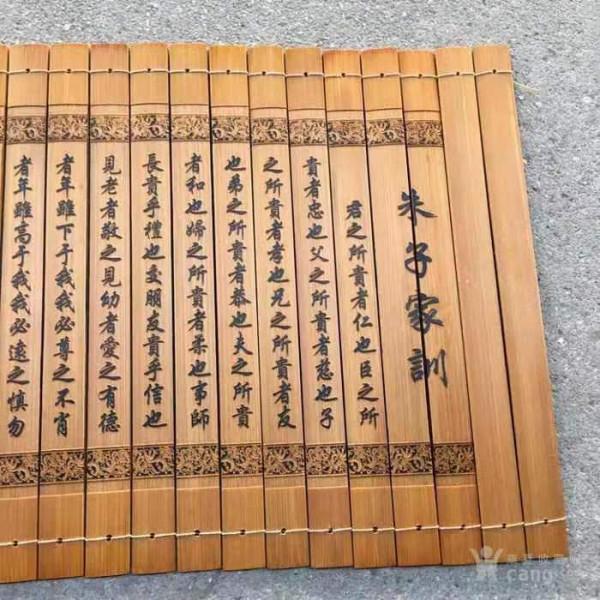 朱子家訓
君之所貴者仁也臣之所
貴者忠也父之所貴者慈也子
之所貴者孝也兄之所貴者友
也弟之所貴者恭也夫之所貴
者和也婦之所貴者柔也事師
長貴乎禮也交朋友貴乎信也
見老者敬之見幼者愛之有德
者年雖下于我我必尊之不肖
者年雖高于我我必遠之慎勿
cang